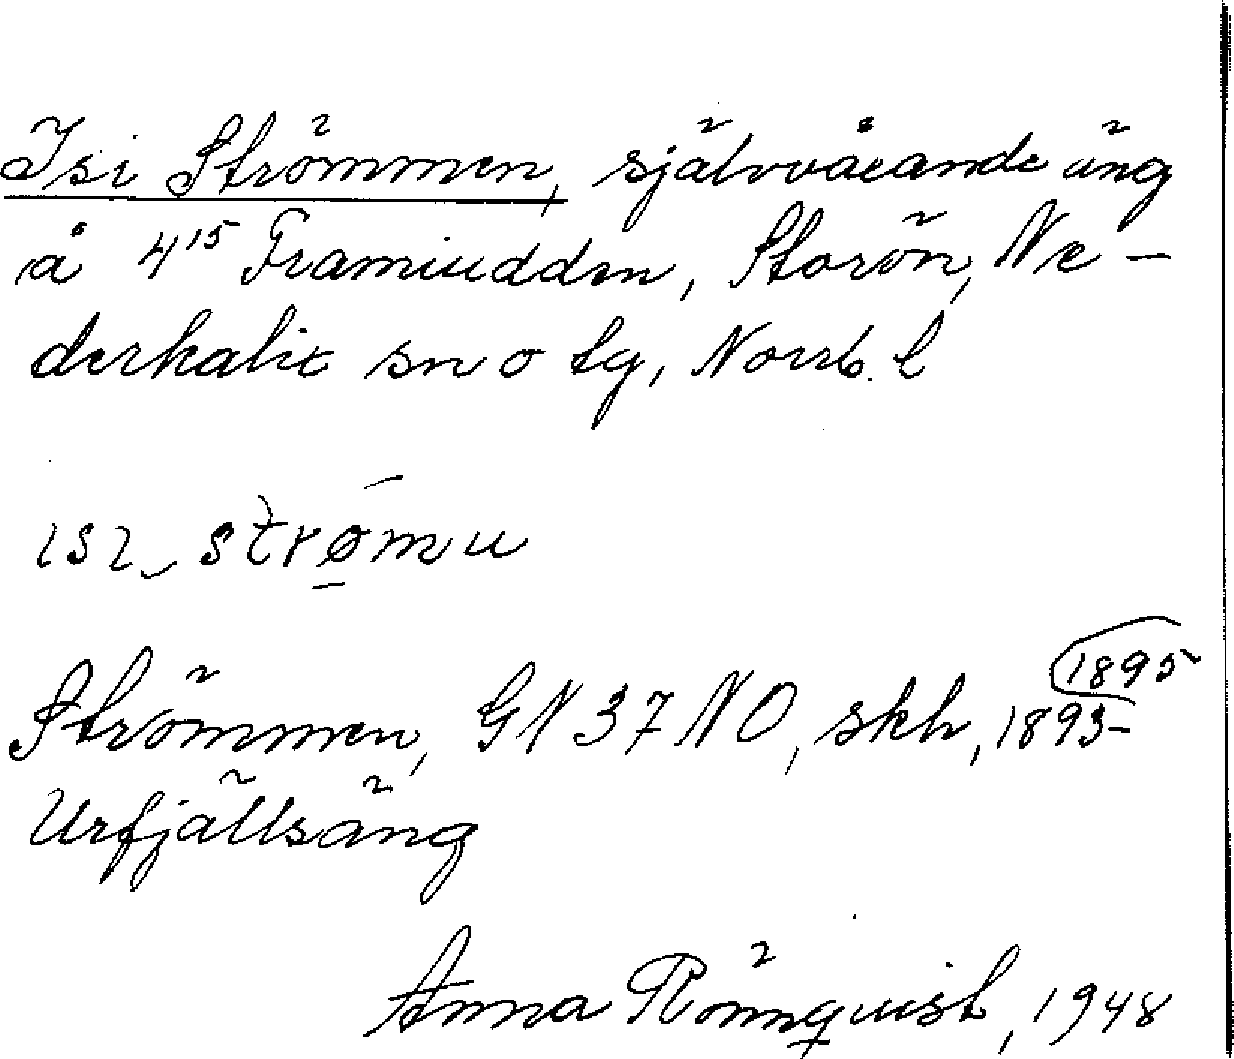 Isi Strömmen, självvåcande äng
å 4¹⁵ Framiudden, Storön, Ne-
derkalix sn o tg, Norrb. l
isi strømu
1895
Strömmen, GN 37 NO, skh, 1893-
Urfjällsäng
Anna Rönnquist, 1948